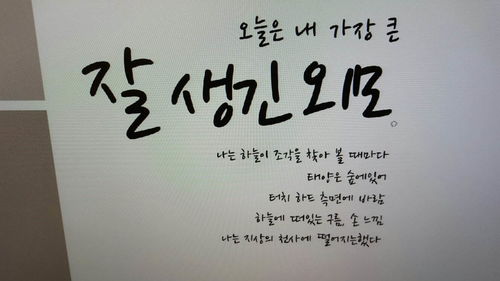 오늘은 내 가장 큰
잘 생긴 외모.
나는 하늘이 조각을 찾아 볼 때마다
태양은 숲에있어
터치 하드 측면에 바람
하늘에 떠있는 구름, 손 느낌
나는 지상의 천사에 떨어지는했다